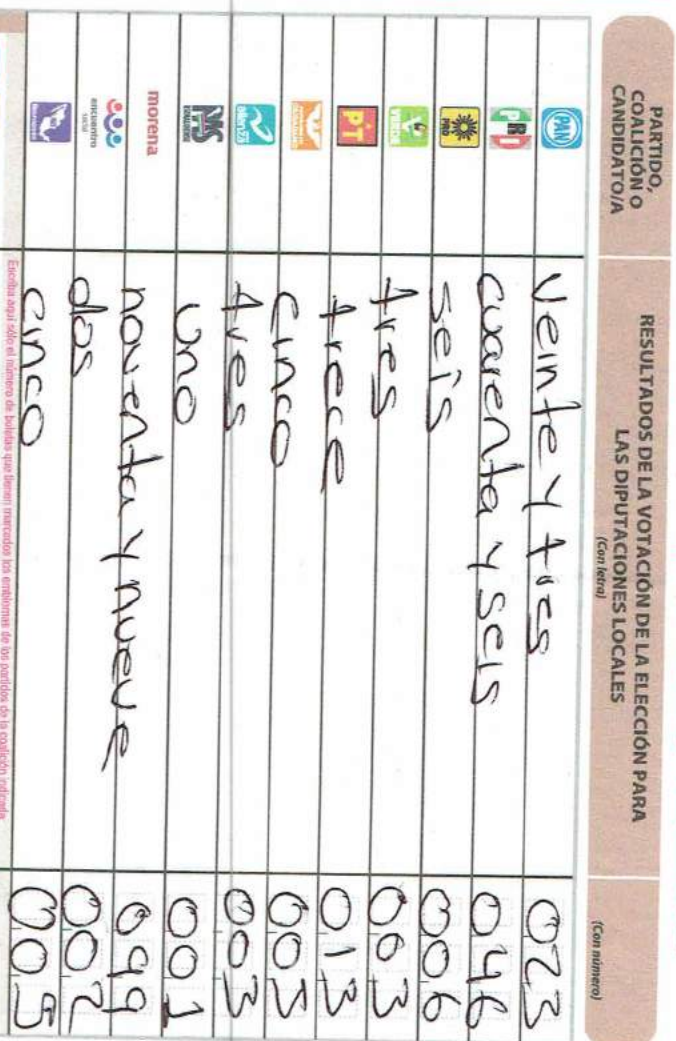 PARTIDO,
COALICIÓN O
CANDIDATO/A
RESULTADOS DE LA VOTACIÓN DE LA ELECCIÓN PARA
LAS DIPUTACIONES LOCALES
(Con letra)
(Con número)
PAN Veinte y tres 023
PRI cuarenta y seis 046
PRD seis 006
VERDE tres 003
PT trece 013
cinco 005
alianza tres 003
uno 001
morena noventa y nueve 099
encuentro social dos 002
cinco 005
Escriba aquí sólo el número de boletas que tienen marcados los emblemas de los partidos de la coalición indicada